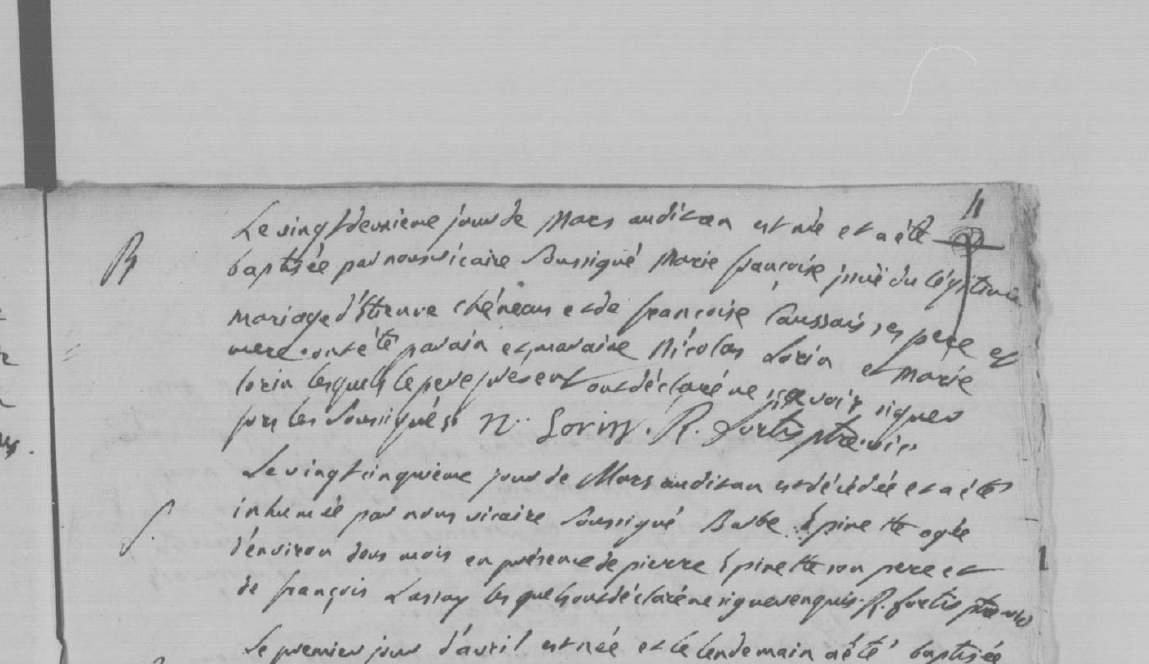 11
B
Le vingt deuxieme jour de Mars audit an est née et a été
baptisée par nous vicaire soussigné Marie françoise issuë du légitime
mariage d'Etienne chéneau et de françoise Caussais ses pere et
mere ont été parain et maraine Nicolas Lorin et Marie
lorin lesquels le pere présent ont déclaré ne sçavoir signer
fors les soussignés N. Lorin. R. furtis ptre vic
Le vingt cinquième jour de Mars audit an est décédée et a été
S.
inhumée par nous vicaire soussigné Barbe Epinette agée
d'environ dous mois en présence de pierre Epinette son pere et
de françois Lassay lesquels ont déclaré ne signer enquis. R. furtis ptre vic
Le premier jour d'avril est née et le lendemain a été baptisée